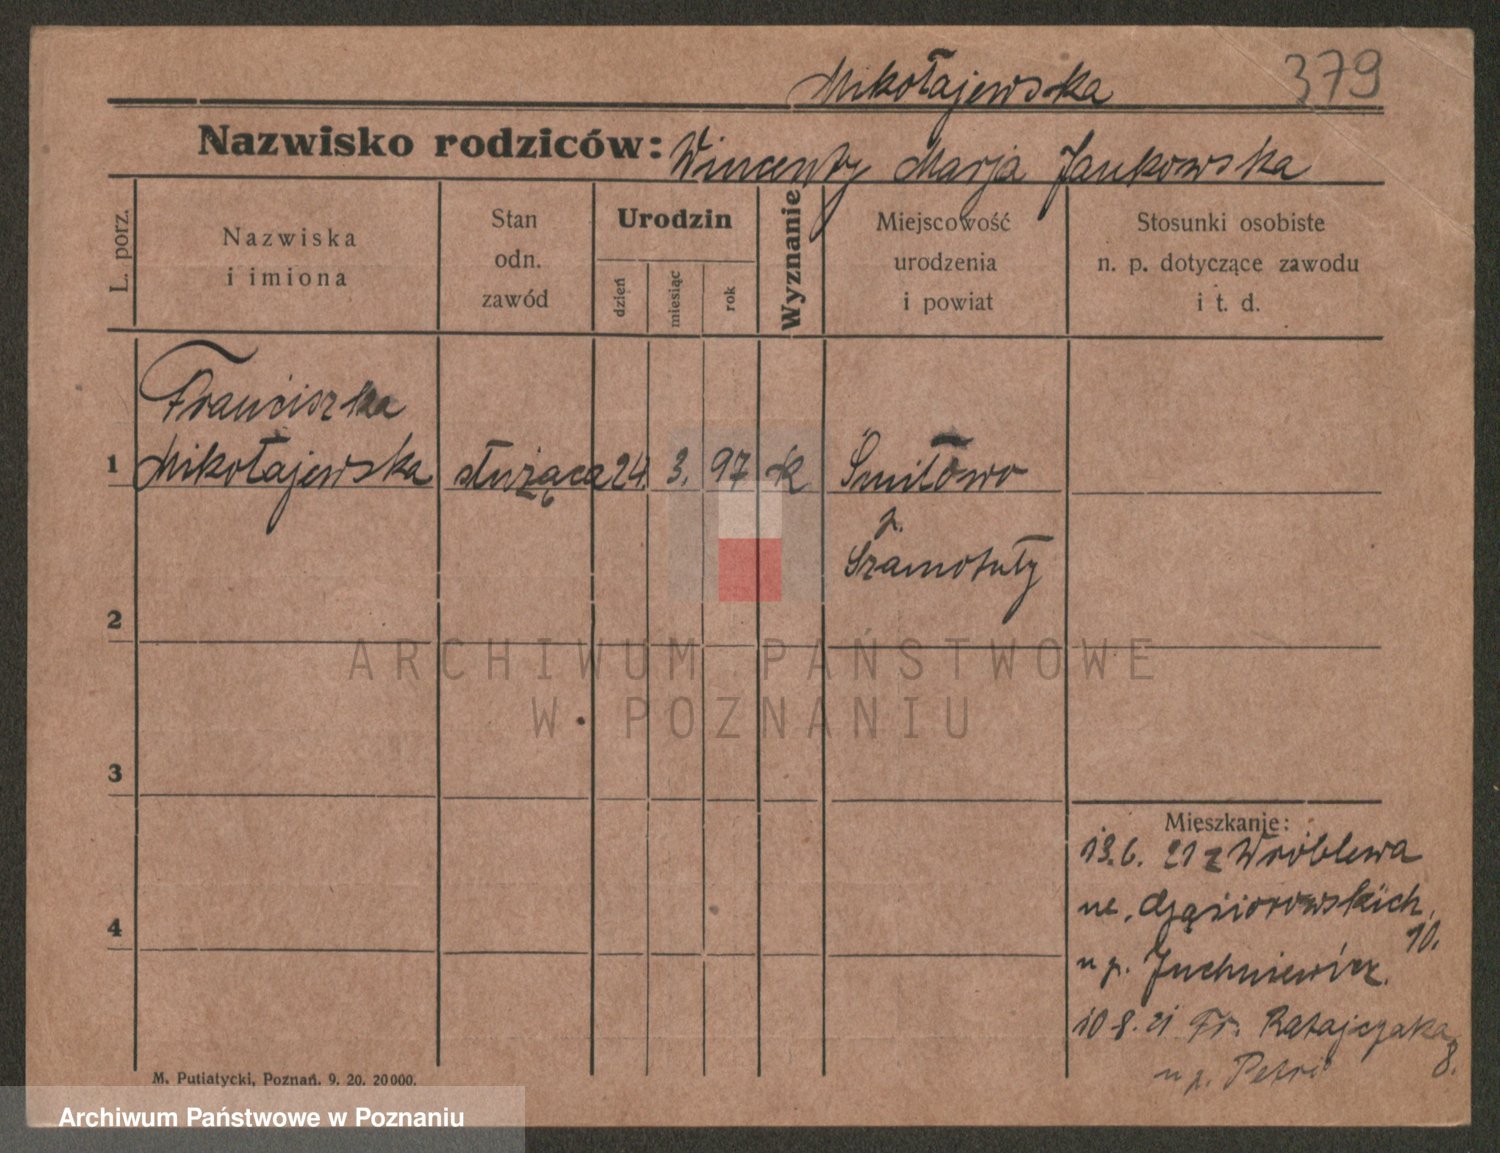 Mikołajewska 379
Nazwisko rodziców: Wincenty Marja Jankowska
L. porz.
Nazwiska
i imiona
Stan
odn.
zawód
Urodzin
dzień
miesiąc
rok
Wyznanie
Miejscowość
urodzenia
i powiat
Stosunki osobiste
n. p. dotyczące zawodu
i t. d.
Franciszka
1 Mikołajewska służąca 24. 3. 97 k Śmiłowo
p.
Szamotuły
2
ARCHIWUM PAŃSTWOWE
W POZNANIU
3
Mieszkanie:
13.6. 21 z Wróblewa
ul. Gąsiorowskich,
10.
4
u p. Juchniewicz.
10 8. 21 Fr. Ratajczaka
8.
u p. Petri
M. Putiatycki, Poznań. 9. 20. 20000.
Archiwum Państwowe w Poznaniu